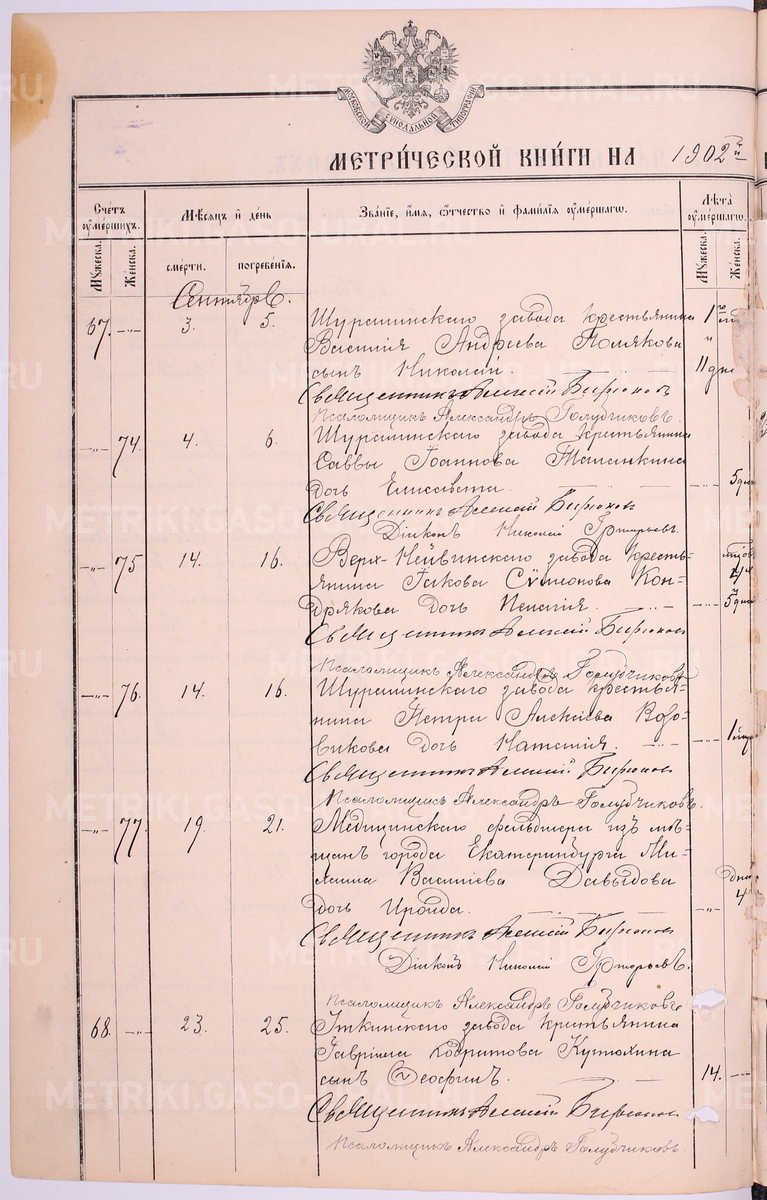 МОСКОВСКОЙ СѴНОДАЛЬНОЙ ТИПОГРАФІИ
МЕТРИ́ЧЕСКОЙ КНИ́ГИ НА 1902 й
Счетъ ᲂу҆ме́ршихъ.
Мѣ́сѧцъ и҆ де́нь
Зва́нїе, и҆́мѧ, ѻ҆́тчество и҆ фами́лїѧ ᲂу҆ме́ршагѡ.
Лѣ́та ᲂу҆ме́ршагѡ.
Мꙋ́жеска.
Же́нска.
сме́рти.
погребе́нїѧ.
Мꙋ́жеска.
Же́нска.
Сентябрь.
67. -"- 3. 5. Шуралинскаго завода крестьянина 1 го
Василія Андреева Полякова и
сынъ Николай. 11 дне
Священникъ Алексій Бирюков
Псаломщикъ Александръ Голубчиковъ.
-"- 74. 4. 6. Шуралинскаго завода крестьянина
Саввы Іоаннова Таланкина
дочь Елисавета. -"- 5 дн
Священникъ Алексій Бирюков
Діаконъ Николай Григорьевъ.
-"- 75. 14. 16. Верх-Нейвинскаго завода кресть-
янина Іакова Сѵмеонова Кон-
дрякова дочь Пелагія. -"- 5 дн
Священникъ Алексій Бирюков
Псаломщикъ Александръ Голубчиковъ
-"- 76. 14. 16. Шуралинскаго завода крестья-
нина Петра Алексіева Возо-
викова дочь Наталія. -"- 1
Священникъ Алексій Бирюков
Псаломщикъ Александръ Голубчиковъ.
-"- 77. 19. 21. Медицинскаго фельдшера изъ мѣ-
щанъ города Екатеринбурга Ми-
хаила Василіева Давыдова
дочь Ираида. -"- 4
Священникъ Алексій Бирюков
Діаконъ Николай Григорьевъ.
Псаломщикъ Александръ Голубчиковъ
68. -"- 23. 25. Иткинскаго завода крестьянина
Гавріила Кодратова Кутюхина
сынъ Ѳеофилъ. 14. -"-
Священникъ Алексій Бирюков
Псаломщикъ Александръ Голубчиковъ.
METRIKI.GASO-URAL.RU